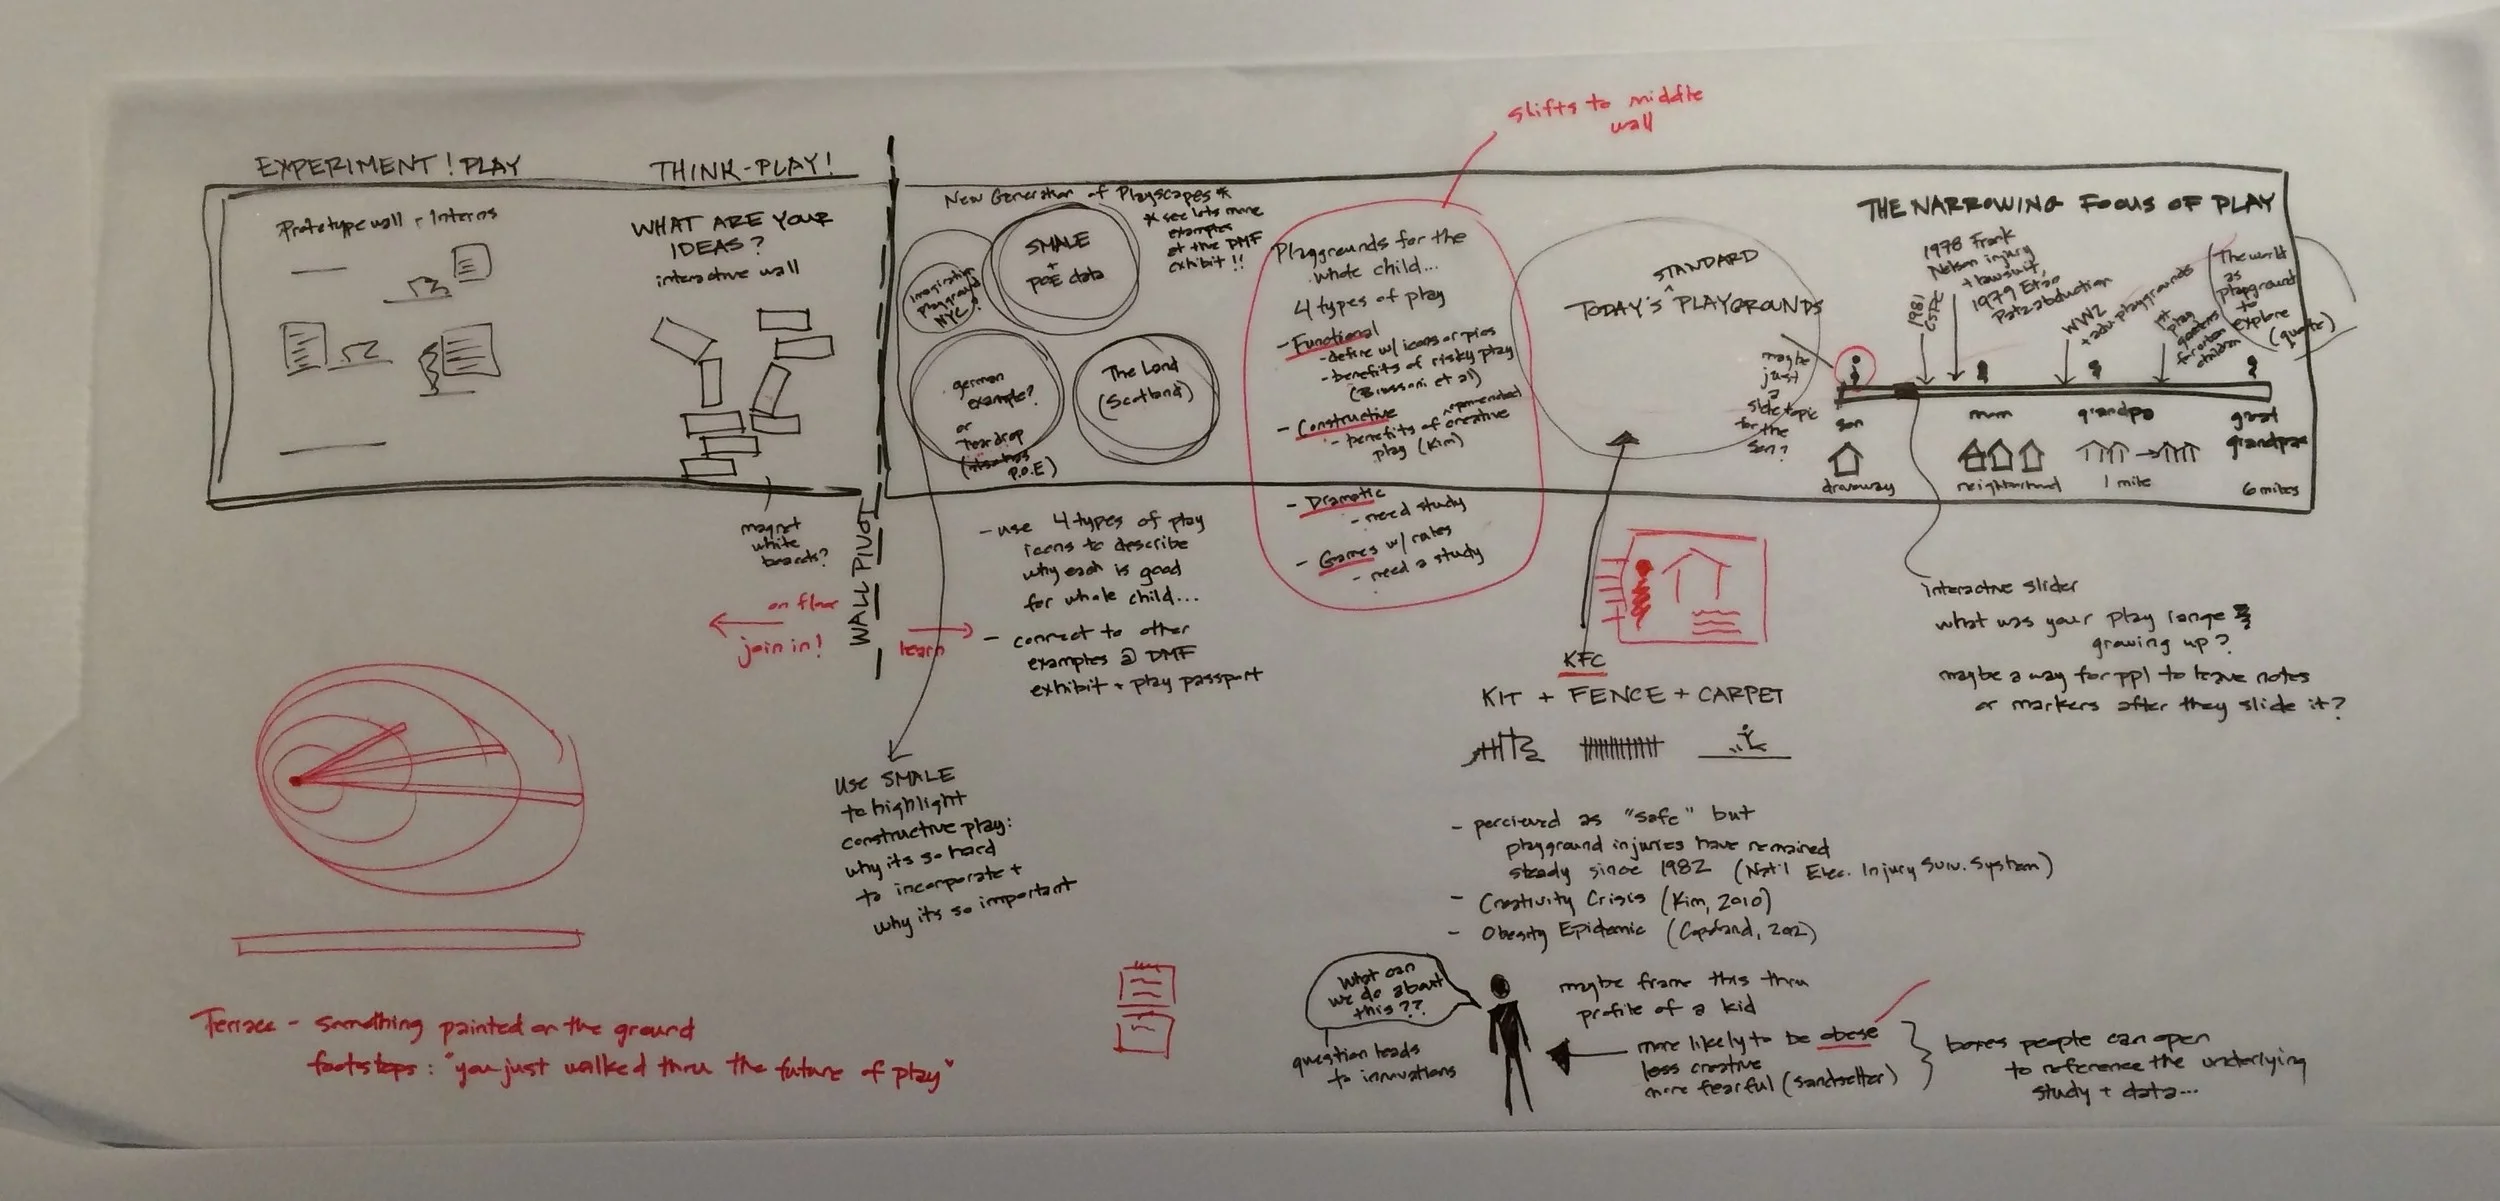 shifts to middle
wall
EXPERIMENT! PLAY
THINK-PLAY!
Prototype wall + Interns
WHAT ARE YOUR
IDEAS?
interactive wall
magnet
white
boards?
WALL PIVOT
on floor
join in!
learn
New Generation of Playscapes*
* see lots more
examples
at the DMF
exhibit!!
imagination
playground
NYC?
SMALE
+
POE data
german
example?
or
Teardrop
P.O.E)
The Land
(Scotland)
- use 4 types of play
icons to describe
why each is good
for whole child...
- connect to other
examples @ DMF
exhibit + play passport
Use SMALE
to highlight
constructive play:
why its so hard
to incorporate +
why its so important
Playgrounds for the
whole child...
4 types of play
- Functional
- define w/ icons or pics
- benefits of risky play
(Brussoni et al)
- Constructive
- benefits of open-ended creative
play (Kim)
- Dramatic
- need study
- Games w/ rules
- need a study
TODAY'S STANDARD PLAYGROUNDS
maybe
just
a
side topic
for the
son?
KFC
KIT + FENCE + CARPET
- percieved as "safe" but
playground injuries have remained
steady since 1982 (Nat'l Elec. Injury Surv. System)
- Creativity Crisis (Kim, 2010)
- Obesity Epidemic (Copeland, 2012)
What can
we do about
this??
question leads
to innovations
maybe frame this thru
profile of a kid
more likely to be obese
less creative
more fearful (sandsetter)
boxes people can open
to reference the underlying
study + data...
THE NARROWING FOCUS OF PLAY
1981
CSPC
1978 Frank
Nelson injury
+ lawsuit,
1979 Etan
Patz abduction
WW2
+ adv. playgrounds
1st
play
gardens
for urban
children
(The world
as
playground
to
explore
(quote)
son
mum
grandpa
great
grandpa
driveway
neighborhood
1 mile
6 miles
interactive slider
what was your play range
growing up?
maybe a way for ppl to leave notes
or markers after they slide it?
Terrace - something painted on the ground
footsteps: "you just walked thru the future of play"